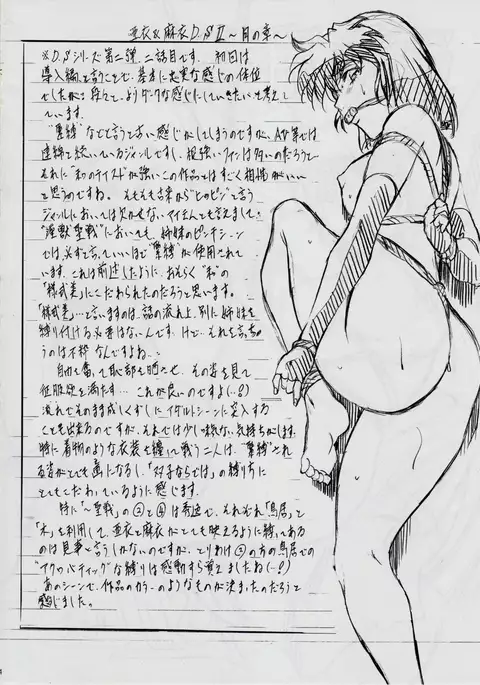 亜衣&麻衣D.S Ⅱ 〜月の章〜
※D.Sシリーズ第二弾、二話目です。 初回は
導入編と言うことで、基本に忠実な感じの体位
でしたが、段々と、よりダークな感じにしていきたいと考えて
います。
"緊縛"などと言うと古い感じがしてしまうのですが、AV等では
連綿と続いているジャンルですし、根強いファンは多いのだろうと…
それに"和のテイスト"が強いこの作品とはすごく相性がいい
と思うのですね。 そもそも古来から"ヒロピン"と言う
ジャンルにおいては欠かせないアイテムとも言えまして…
"淫獣聖戦"においても、姉妹のピンチシーン
では必ずと言っていいほど"緊縛"が使用されて
います。これは前述したように、おそらく"和"の
「様式美」にこだわられたのだろうと思います。
「様式美」…と言いますのは、話の流れ上、別に姉妹を
縛り付ける必要はないんです。けど…それを言っちゃ
うのは不粋なんですよね…
自由を奪って恥部を晒させ、その姿を見て
征服欲を満たす… これが良いのですよ(..♂)
流れでそのまま成しくずしにイタルトシーンに突入する
ことも出来るのですが、それでは少し味気ない気持ちがします。
特に着物のような衣装を纏って戦う二人は、"緊縛"され
る姿がとても画になるし、「双子ならでは」の縛り方に
とてもこだわっているように感じます。
特に「〜聖戦」の②と④は秀逸で、それぞれ「鳥居」と
「木」を利用して、亜衣と麻衣がとても映えるように縛ってある
のは見事と言うしかないのですが、とりわけ②の方の鳥居での
"アクロバティック"な縛りは感動すら覚えましたね(..♂)
あのシーンで、作品のカラーのようなものが決まったのだろうと
感じました。